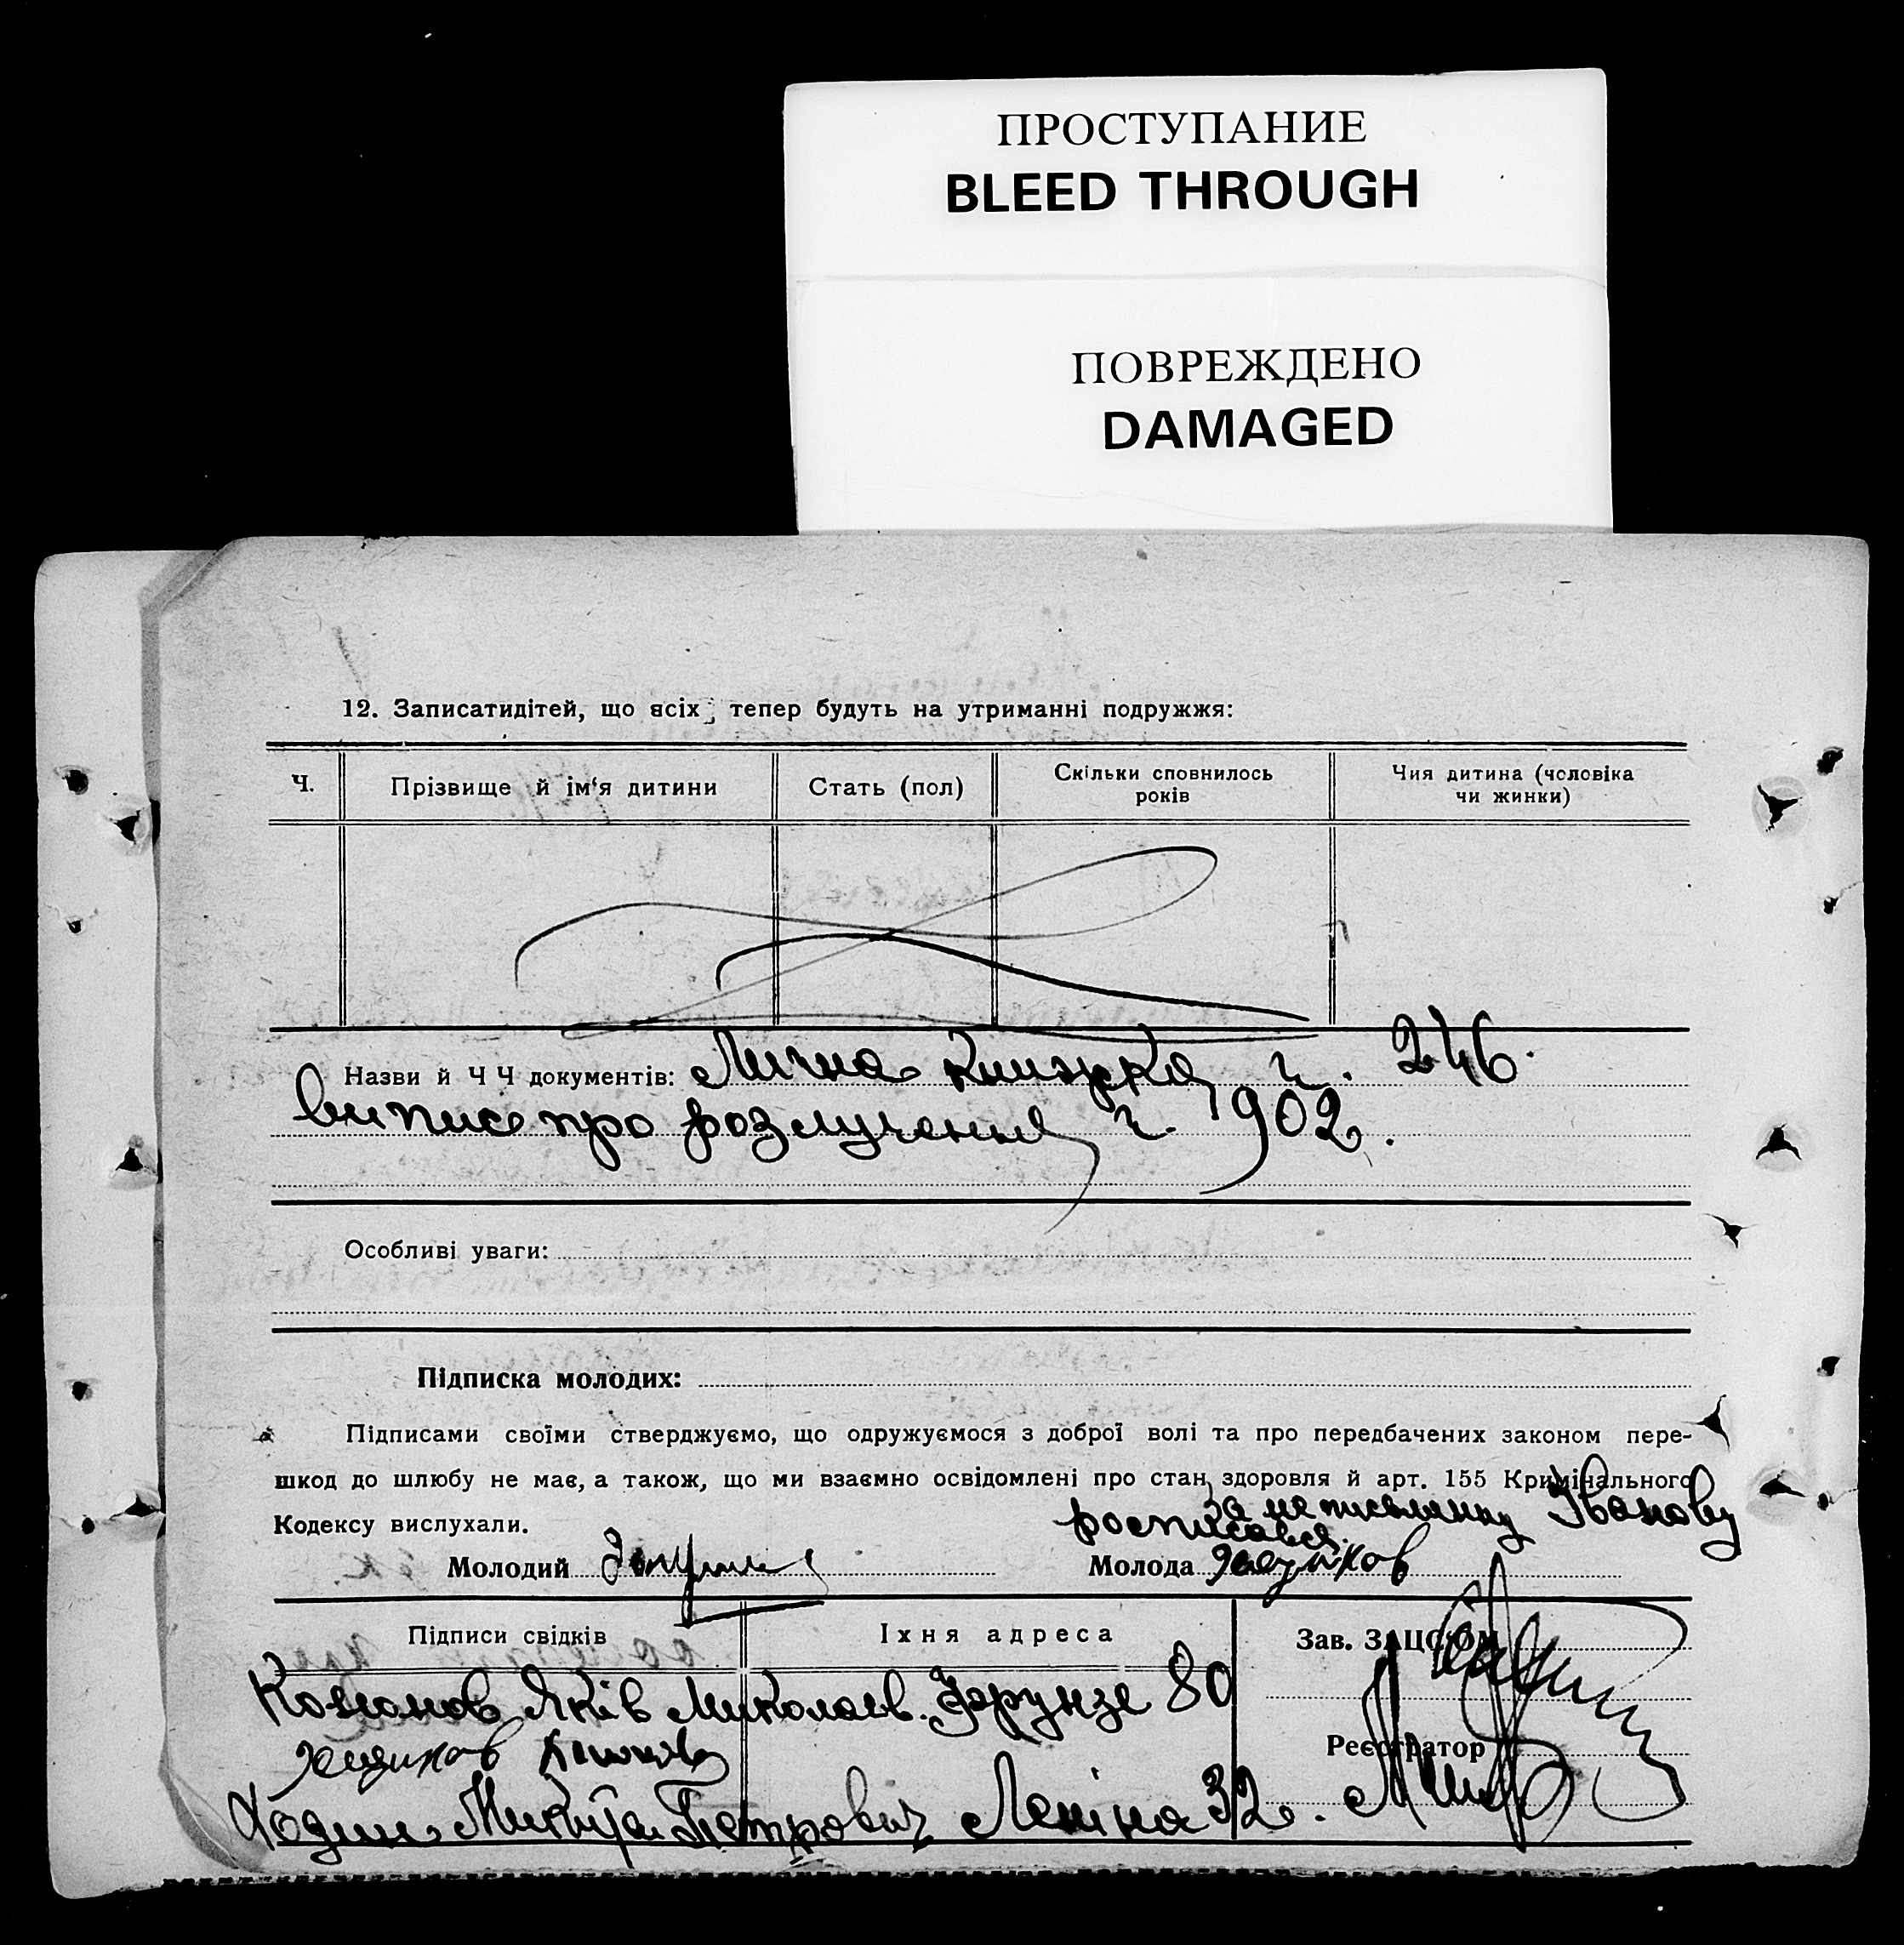 ПРОСТУПАНИЕ
BLEED THROUGH
ПОВРЕЖДЕНО
DAMAGED
12. Записатидітей, що всіх тепер будуть на утриманні подружжя:
Ч.
Прізвище й ім‘я дитини
Стать (пол)
Скільки сповнилось
років
Чия дитина (чоловіка
чи жинки)
Назви й Ч Ч документів: Лична книжка ч. 246.
Випис про розлучення ч. 902.
Особливі уваги:
Підписка молодих:
Підписами своїми стверджуємо, що одружуємося з доброї волі та про передбачених законом пере-
шкод до шлюбу не має, а також, що ми взаємно освідомлені про стан здоровля й арт. 155 Кримінального
Кодексу вислухали.
за неписьменну Іванову
росписався
Молодий
Молода
Підписи свідків
Їхня адреса
Зав. ЗАЦС'ОМ
Яків Миколаєв. Фрунзе 80
Реєстратор
Микита Петрович Леніна 32.